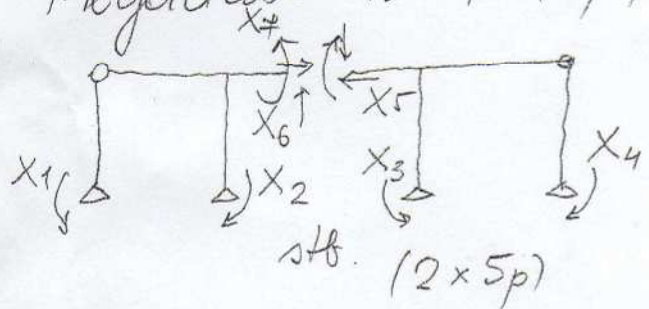 X7
X6
X5
X1
X2
X3
X4
stb. (2 x 5p)